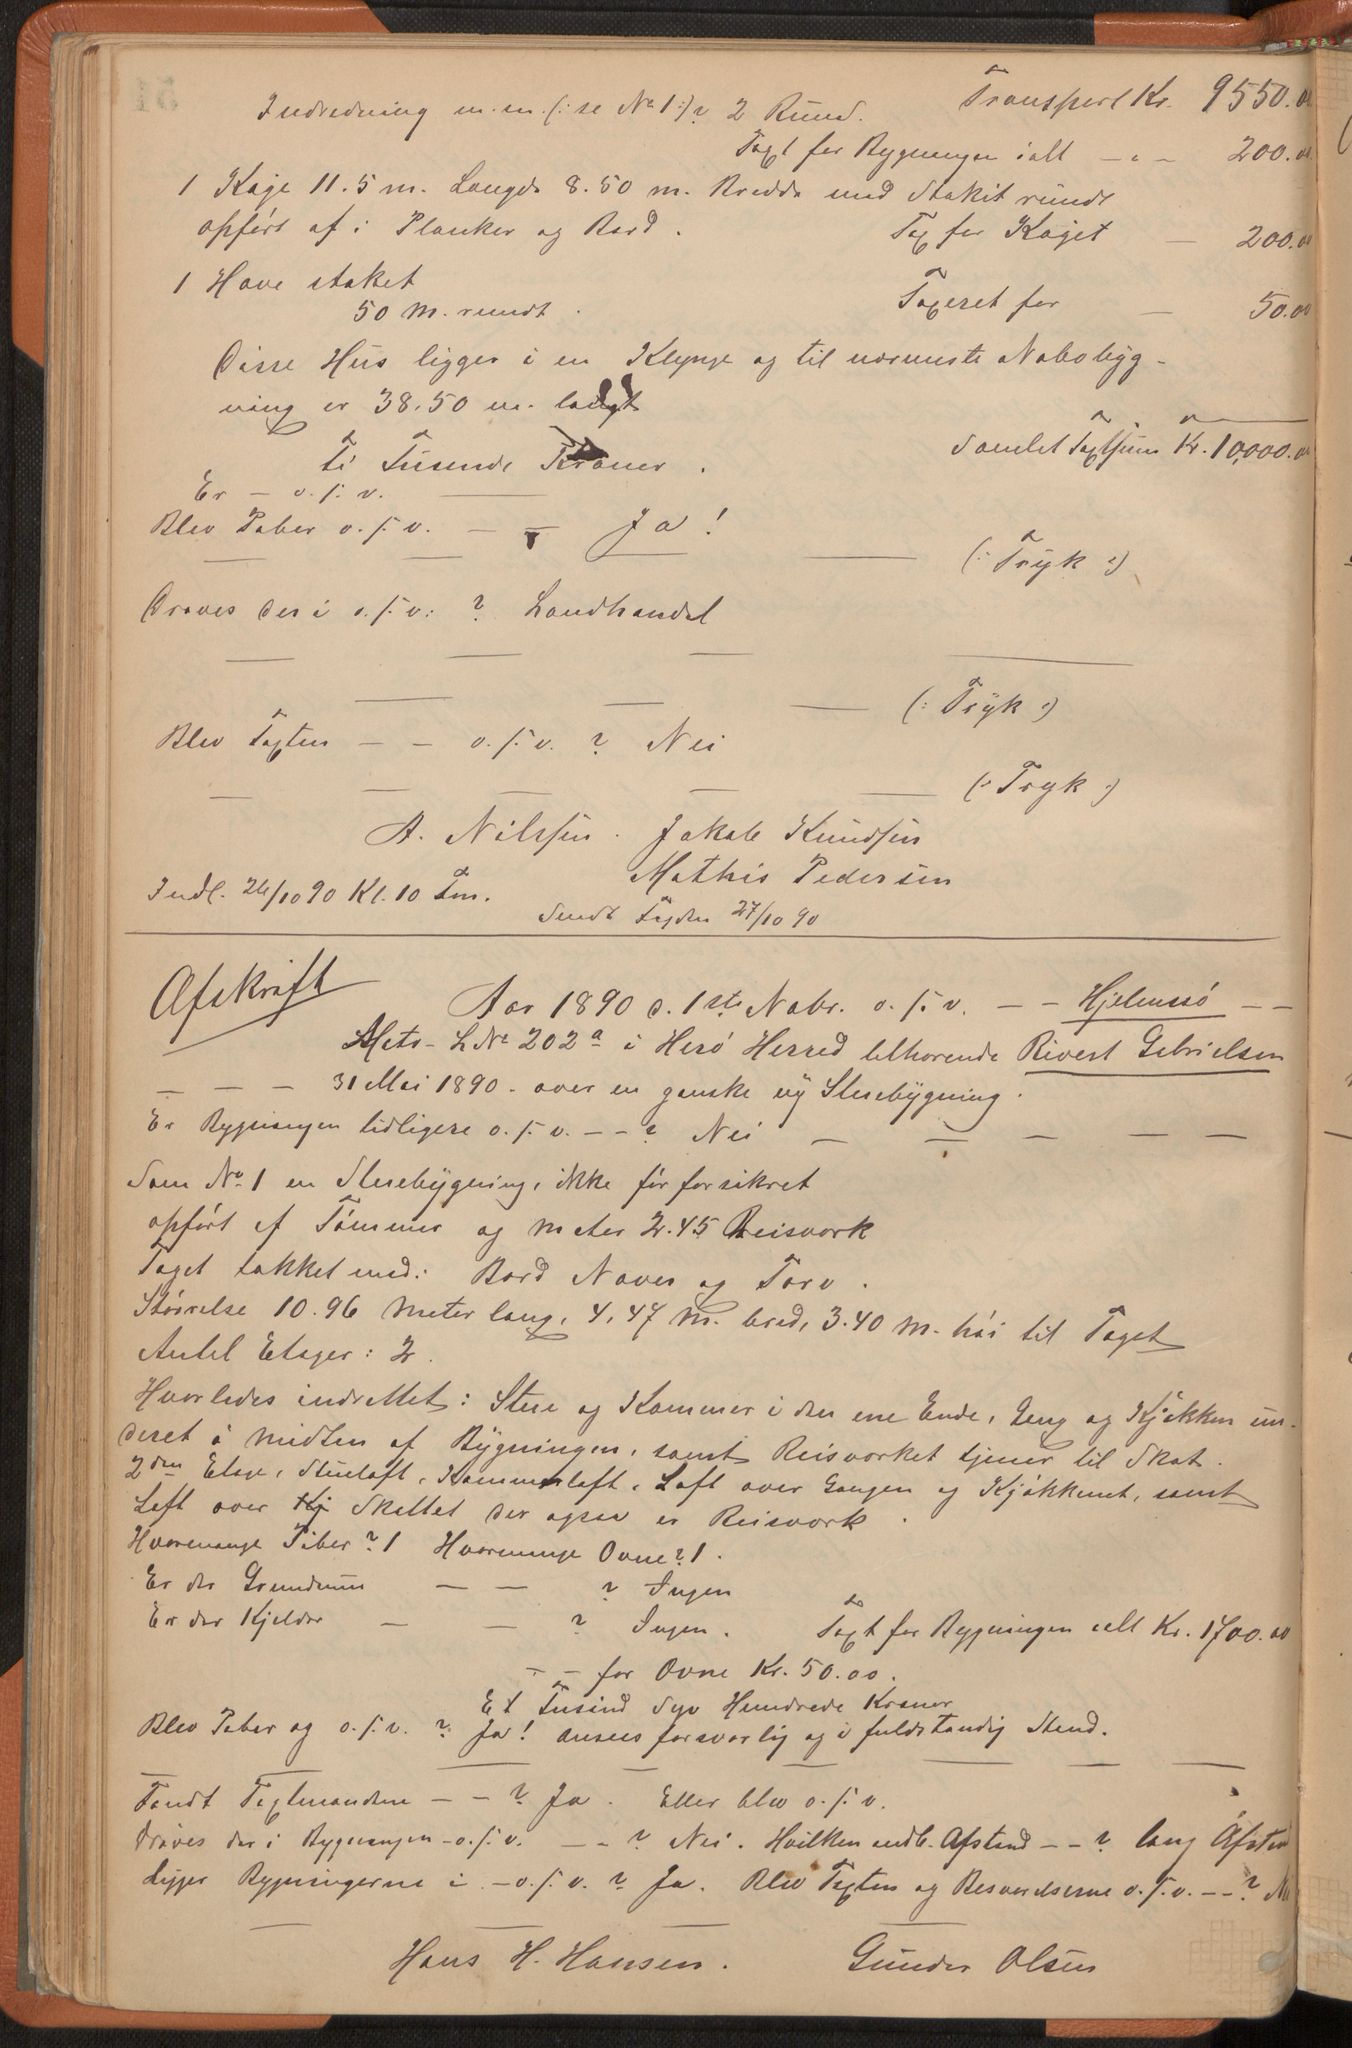 Transport Kr. 9550.00
Indredning m.m. (: se No 1 :) ? 2 Rum.
Taxt for Bygningen ialt — " — 200.00
1 Kaje 11.5 m. Længde 8.50 m. Bredde med Stakit rundt
opført af i Planker og Bord. Tax for Kajet — 200.00
1 Have staket
50 m. rundt. Taxeret for — 50.00
Disse Hus ligger i en Klynge og til nærmeste Nabobyg-
ning er 38.50 m. langt
Samlet Taxtsum Kr. 10,000.00
Ti Tusende Kroner.
Er — o.s.v. —
Blev Piber o.s.v. — — Ja!
— — — — (: Tryk :)
Drives der i o.s.v. ? Landhandel
— — — —
— — — (: Tryk :)
Blev Taxten — — o.s.v. ? Nei
— — — — — (: Tryk :)
A. Nilssen. Jakob Knudsen
Mathis Pedersen
Indl. 26/10 90 Kl. 10 Fm.
Sendt Fogden 27/10 90
Afskrift
Aar 1890 d. 1ste Novbr. o.s.v. — — Hjelmsø — —
Mats- L No 202a i Herø Herred tilhørende Rivert Gabrielsen
— — — 31 Mai 1890 - over en ganske ny Stuebygning.
Er Bygningen tidligere o.s.v. — — ? Nei — — — — —
Som No 1 en Stuebygning, ikke før forsikret
opført af Tømmer og meter 2.45 Reisværk
Taget tækket med: Bord Næver og Torv.
Størrelse 10.96 meter lang, 4,47 m. bred, 3.40 m. høi til Taget
Antal Etager: 2.
Hvorledes indrettet: Stue og Kammer i den ene Ende, Gang og Kjøkken un-
deret i midten af Bygningen, samt Reisværket tjener til Skot.
2den Etage, Stueloft, Kammerloft, Loft over Gangen og Kjøkkenet, samt
Loft over Kj Skottet der ogsaa er Reisværk.
Hvormange Piber? 1 Hvormange Ovne? 1.
Er der Grundmur — — ? Ingen
Er der Kjelder — — ? Ingen. Taxt for Bygningen ialt Kr. 1700.00
— — for Ovne Kr. 50.00.
Et Tusind Syv Hundrede Kroner
Blev Piber og o.s.v. ? Ja! ansees forsvarlig og i fuldstændig Stand.
— — — — — — —
Fandt Taxtmændene — — ? Ja. Eller blev o.s.v.
Drives der i Bygningen - o.s.v. — — ? Nei. Hvilken indb. Afstand — — ? lang Afstand
Ligger Bygningerne i — o.s.v. ? Ja. Blev Taxten og Besvarelserne o.s.v. — — ? Nei
— — —
Hans H. Hansen. Gunder Olsen